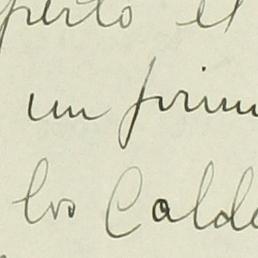 perto el
un prim
los Calde